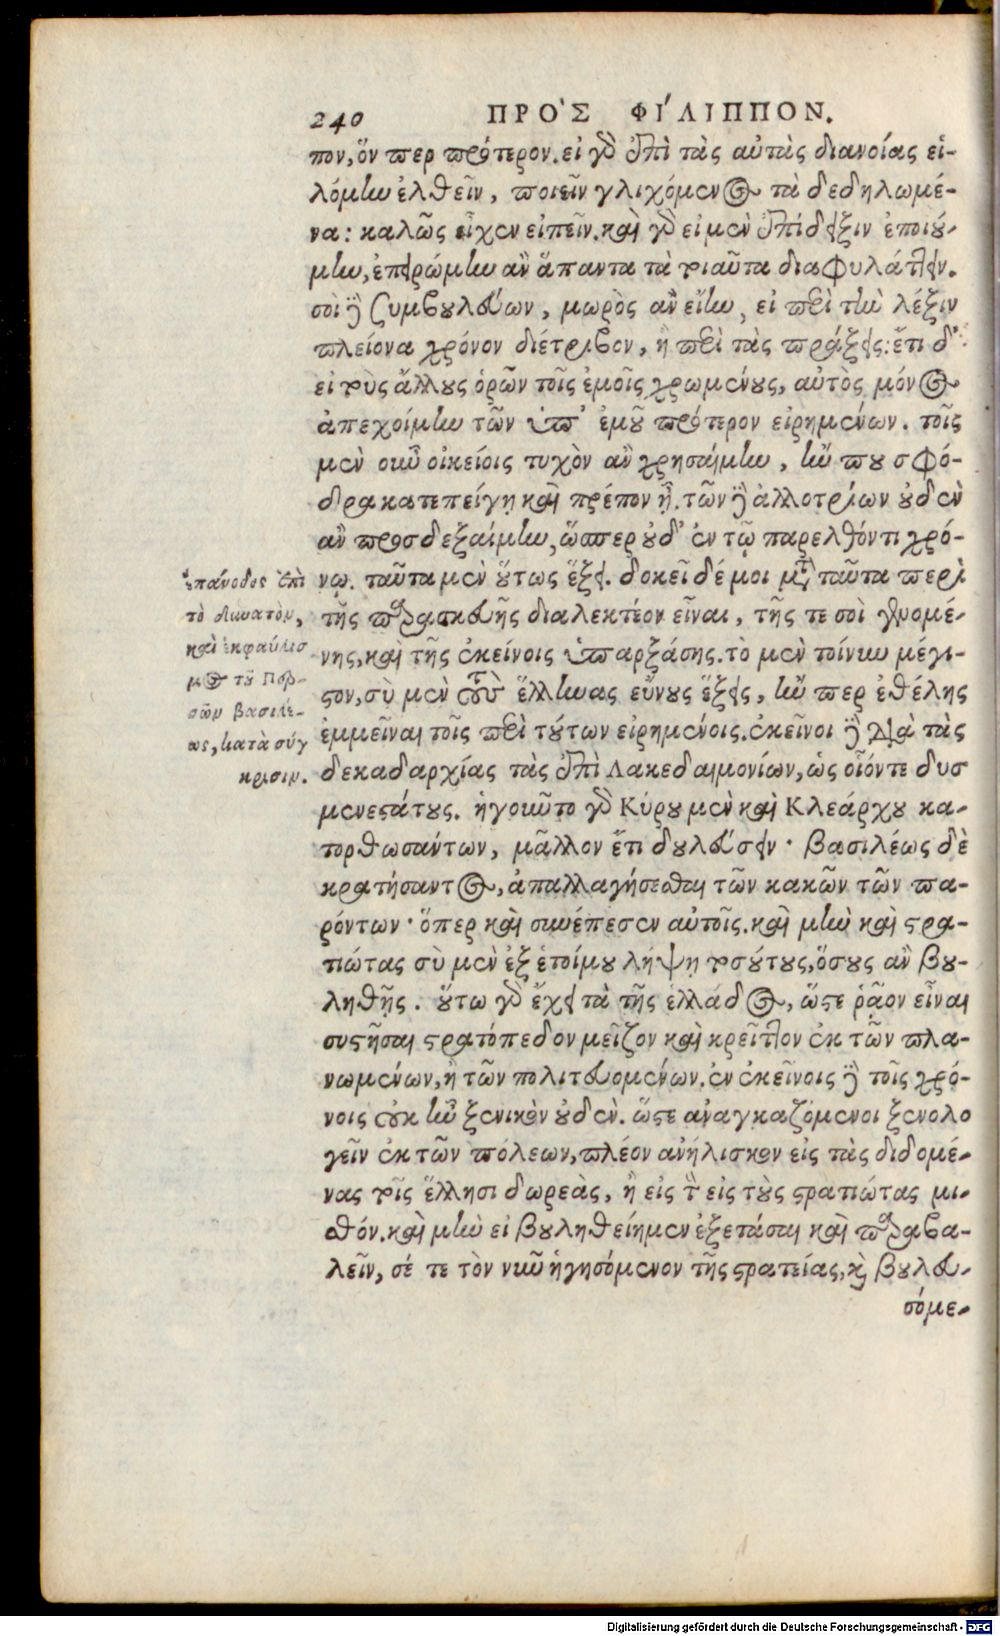 240 ΠΡΟ`Σ ΦΙ´ΛΙΠΠΟΝ.
πον, ὅν περ πρότερον. εἰ γὸ ἐπὶ τὰς αὐτὰς διανοίας εἱ-
λόμην ἐλθεῖν, ποιεῖν γλιχόμενος τὰ δεδηλωμέ-
να: καλῶς εἶχεν εἰπεῖν. καὶ γὸ εἰ μὲν ἐπίδειξιν ἐποιού-
μην, ἐπειρώμην ἂν ἅπαντα τὰ τοιαῦτα διαφυλάττειν.
σοὶ δὲ ξυμβουλεύων, μωρὸς ἂν εἴην, εἰ περὶ τὴν λέξιν
πλείονα χρόνον διέτριβον, ἢ περὶ τὰς πράξεις: ἔτι δ'
εἰ τοὺς ἄλλους ὁρῶν τοῖς ἐμοῖς χρωμένους, αὐτὸς μόνος
ἀπεχοίμην τῶν ὑπ' ἐμοῦ πρότερον εἰρημένων. τοῖς
μὲν οὖν οἰκείοις τυχὸν ἂν χρησαίμην, ἤν που σφό-
δρα κατεπείγῃ καὶ πρέπον ᾖ. τῶν δὲ ἀλλοτρίων οὐδὲν
ἂν προσδεξαίμην, ὥσπερ οὐδ' ἐν τῷ παρελθόντι χρό-
νῳ. ταῦτα μὲν οὕτως ἕξει. δοκεῖ δέ μοι μετὰ ταῦτα περὶ
τῆς παρασκευῆς διαλεκτέον εἶναι, τῆς τε σοὶ γενομέ-
νης, καὶ τῆς ἐκείνοις ὑπαρξάσης. τὸ μὲν τοίνυν μέγι-
στον, σὺ μὲν τοὺς ἕλληνας εὔνους ἕξεις, ἤν περ ἐθέλῃς
ἐμμεῖναι τοῖς περὶ τούτων εἰρημένοις. ἐκεῖνοι δὲ διὰ τὰς
δεκαδαρχίας τὰς ἐπὶ Λακεδαιμονίων, ὡς οἷόντε δυσ
μενεστάτους. ἡγοῦντο γὸ Κύρου μὲν καὶ Κλεάρχου κα-
τορθωσάντων, μᾶλλον ἔτι δουλεύσειν· βασιλέως δὲ
κρατήσαντος, ἀπαλλαγήσεσθαι τῶν κακῶν τῶν πα-
ρόντων· ὅπερ καὶ συνέπεσεν αὐτοῖς. καὶ μὴν καὶ στρα-
τιώτας σὺ μὲν ἐξ ἑτοίμου λήψῃ τοσούτους, ὅσους ἂν βου-
ληθῇς. οὕτω γὸ ἔχει τὰ τῆς ἑλλάδος, ὥστε ῥᾷον εἶναι
συστῆσαι στρατόπεδον μεῖζον καὶ κρεῖττον ἐκ τῶν πλα-
νωμένων, ἢ τῶν πολιτευομένων. ἐν ἐκείνοις δὲ τοῖς χρό-
νοις οὐκ ἦν ξενικὸν οὐδέν. ὥστε ἀναγκαζόμενοι ξενολο
γεῖν ἐκ τῶν πόλεων, πλέον ἀνήλισκον εἰς τὰς διδομέ-
νας τοῖς ἕλλησι δωρεὰς, ἢ εἰς τὸν εἰς τοὺς στρατιώτας μι-
σθόν. καὶ μὴν εἰ βουληθείημεν ἐξετάσαι καὶ παραβα-
λεῖν, σέ τε τὸν νῦν ἡγησόμενον τῆς στρατείας, καὶ βουλευ-
σόμε-
ἐπάνοδος ἐπὶ
τὸ δυνατὸν,
καὶ ἐκφαύλισ
μὸς τοῦ Περ-
σῶν βασιλέ-
ως, κατὰ σύγ
κρισιν.
Digitalisierung gefördert durch die Deutsche Forschungsgemeinschaft - DFG